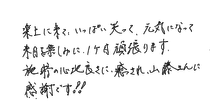 楽土に来て、いっぱい笑って、元気になって
来月を楽しみに、1ヶ月頑張ります。
施術の心地良さに、癒され、山藤さんに
感謝です!!